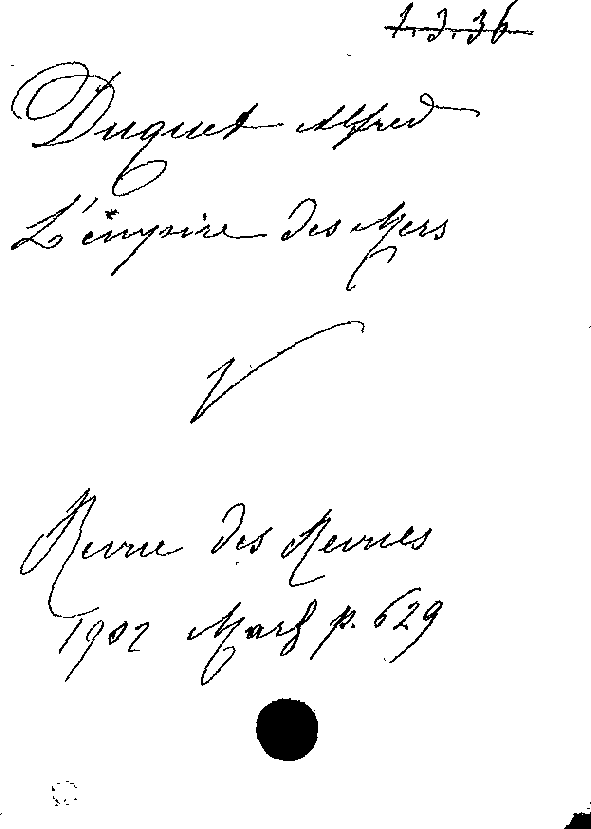 1.3.36
Duquet Alfred
L'empire des Mers
V
Revue des Revues
1902 p. 629